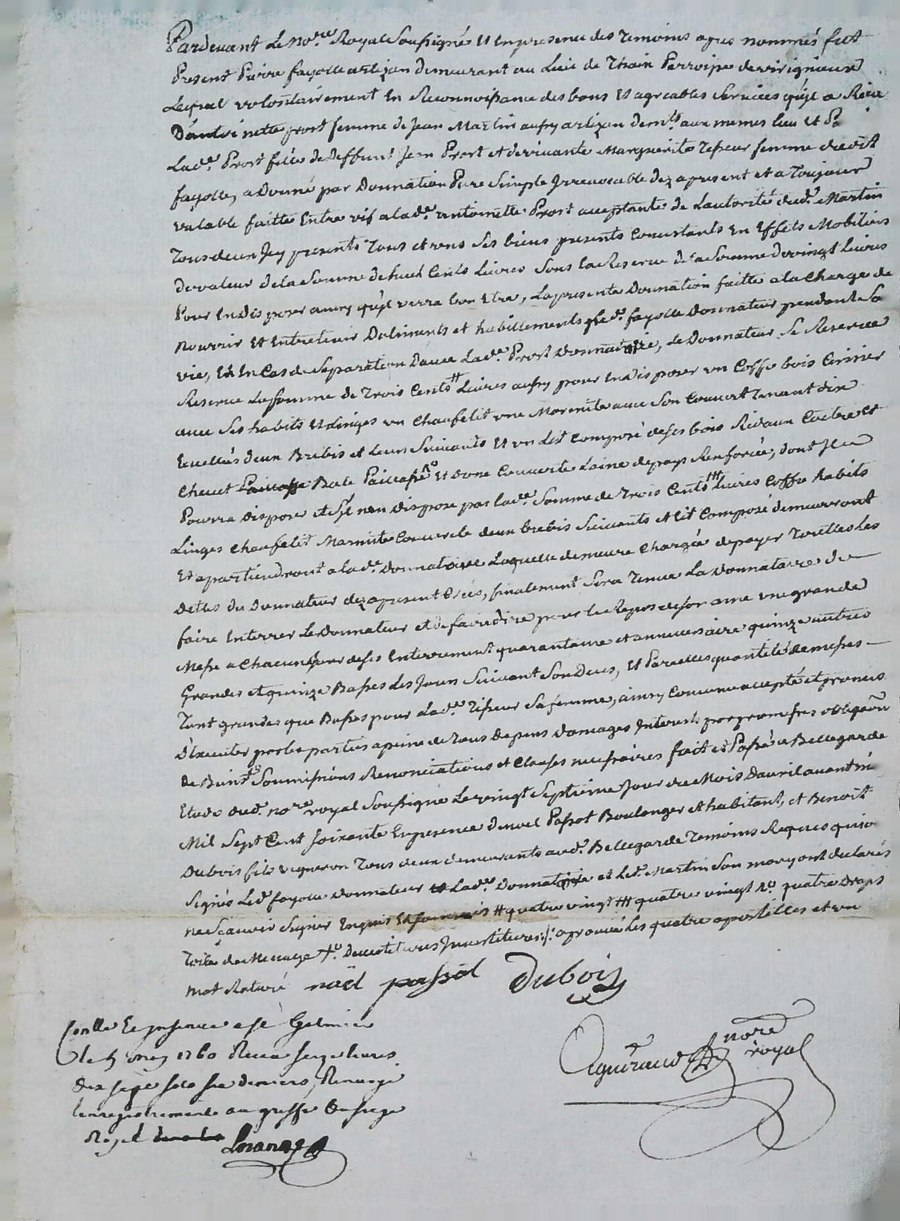 Pardevant Le no.re Royal Soussigné Et En presence des Temoins apres nommés fut
Present Pierre fayolle artizan demeurant au Lieu de Thain Perroisse de virignieux
Lequel volontairement En Reconnoissance des bons Et agreables Services qu'il a Receu
D'antoinette prost femme de Jean Martin aussy artizan dem.t aux memes lieu et P.e
La d.e Prost fille de deffunt Jean Prost et de vivante Marguerite Tisseur femme dudit
fayolle, a Donné par Donnation Pure Simple Irrevocable dez apresent et a Toujour
valable faitte Entre vif a la d.e antoinette Prost acceptante de L'autorité dud. Martin
Tous deux Icy presents Tous et vns Ses biens presents Consistants En Effets Mobiliers
de valeur de la Somme de huit Cents Livres Sous la Reserve de la Somme de vingt Livres
Pour En disposer ainsy qu'il verra bon Etre, La presente Donnation faitte a la Charge de
nourrir Et Entretenir D'aliments et habillements Le d. fayolle Donnateur pendant Sa
vie, Et En Cas de Separation D'avec La d.e Prost Donnataire, Le Donnateur Se Reserve
Reserve La somme de Trois Cents # Livres aussy pour En disposer un Coffre bois Cerisier
avec Ses habits Et Linges un Chaufelit une Marmite avec Son Couvert Tenant dix
Ecuelles deux Brebis et Leurs Suivants Et un Lit Composé de ses bois Rideaux Coetre Et
Chevet Bale Et D'une Couverte Laine de pays Renforcée, dont Il
Pourra disposer Et S'il n'en dispose pas la de. Somme de Trois Cents ### Livres Coffre habits
Linges Chaufelit Marmite Couvercle deux brebis Suivants et Lit Composé demeureront
Et apartiendront a la d.e Donnataire Laquelle demeure Chargée de payer Toutes les
Dettes du Donnateur dez apresent Crées, finalement Sera Tenue La Donnataire de
faire Enterrer Le Donnateur et de faire dire pour le Repos de son ame une grande
Messe a Chacun jour de ses Enterrement quarantaine et anniversaire quinze autres
Grandes et quinze Basses Les Jours Suivant Son Deces, Et Pareilles quantité de messes
Tant grandes que Basses pour La d.e Tisseur Sa femme, ainsy Convenu accepté et promis
D'Executer par les parties a peine de Tous Depens Domages Interets par promesses obligaon
de Biens Soumissions Renonciations et Clauses necessaires fait Et Passé a Bellegarde
Etude dud. no.re royal Soussigné Le vingt Septieme Jour du Mois D'avril avant mi
Mil Sept Cent Soixante En presence de noel Passot Boulanger et habitant, et Benoit
Dubois fils vigneron Tous deux demeurants aud. Bellegarde Temoins Requis qui on
Signés Le d. fayolle Donnateur La d.e Donnataire et Le d. Martin Son mary ont declarés
ne Scavoir Signer Enquis Et Sommés # quatre vingt ### quatre vingt quatre Draps
Toile de Menage Investiture aprouvé Les quatre apostilles et un
mot Raturé noël passot Dubois
no.re
royal
Conllé En presence
le 5 may 1760 Receu seize livres
dix sept sols six deniers, Renvoyé
lenregistrement au greffe du siege
Royal